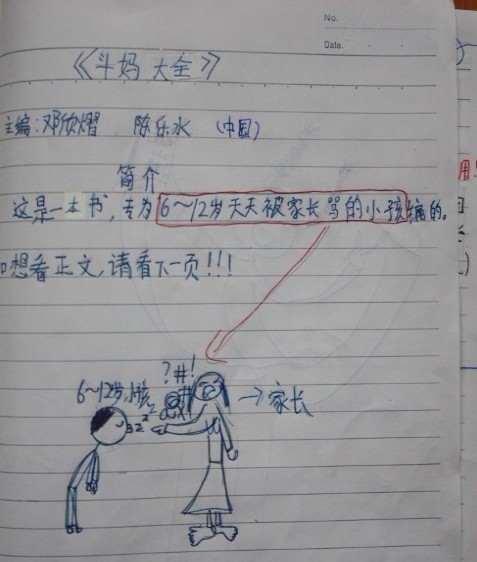 No.
Date.
《斗妈 大全》
主编:邓欣熠 陈乐水 (中国)
简介
这是一本书,专为6~12岁天天被家长骂的小孩编的。
想看正文,请看下一页!!!
?#!
6~12岁小孩
zzz
→家长
用!